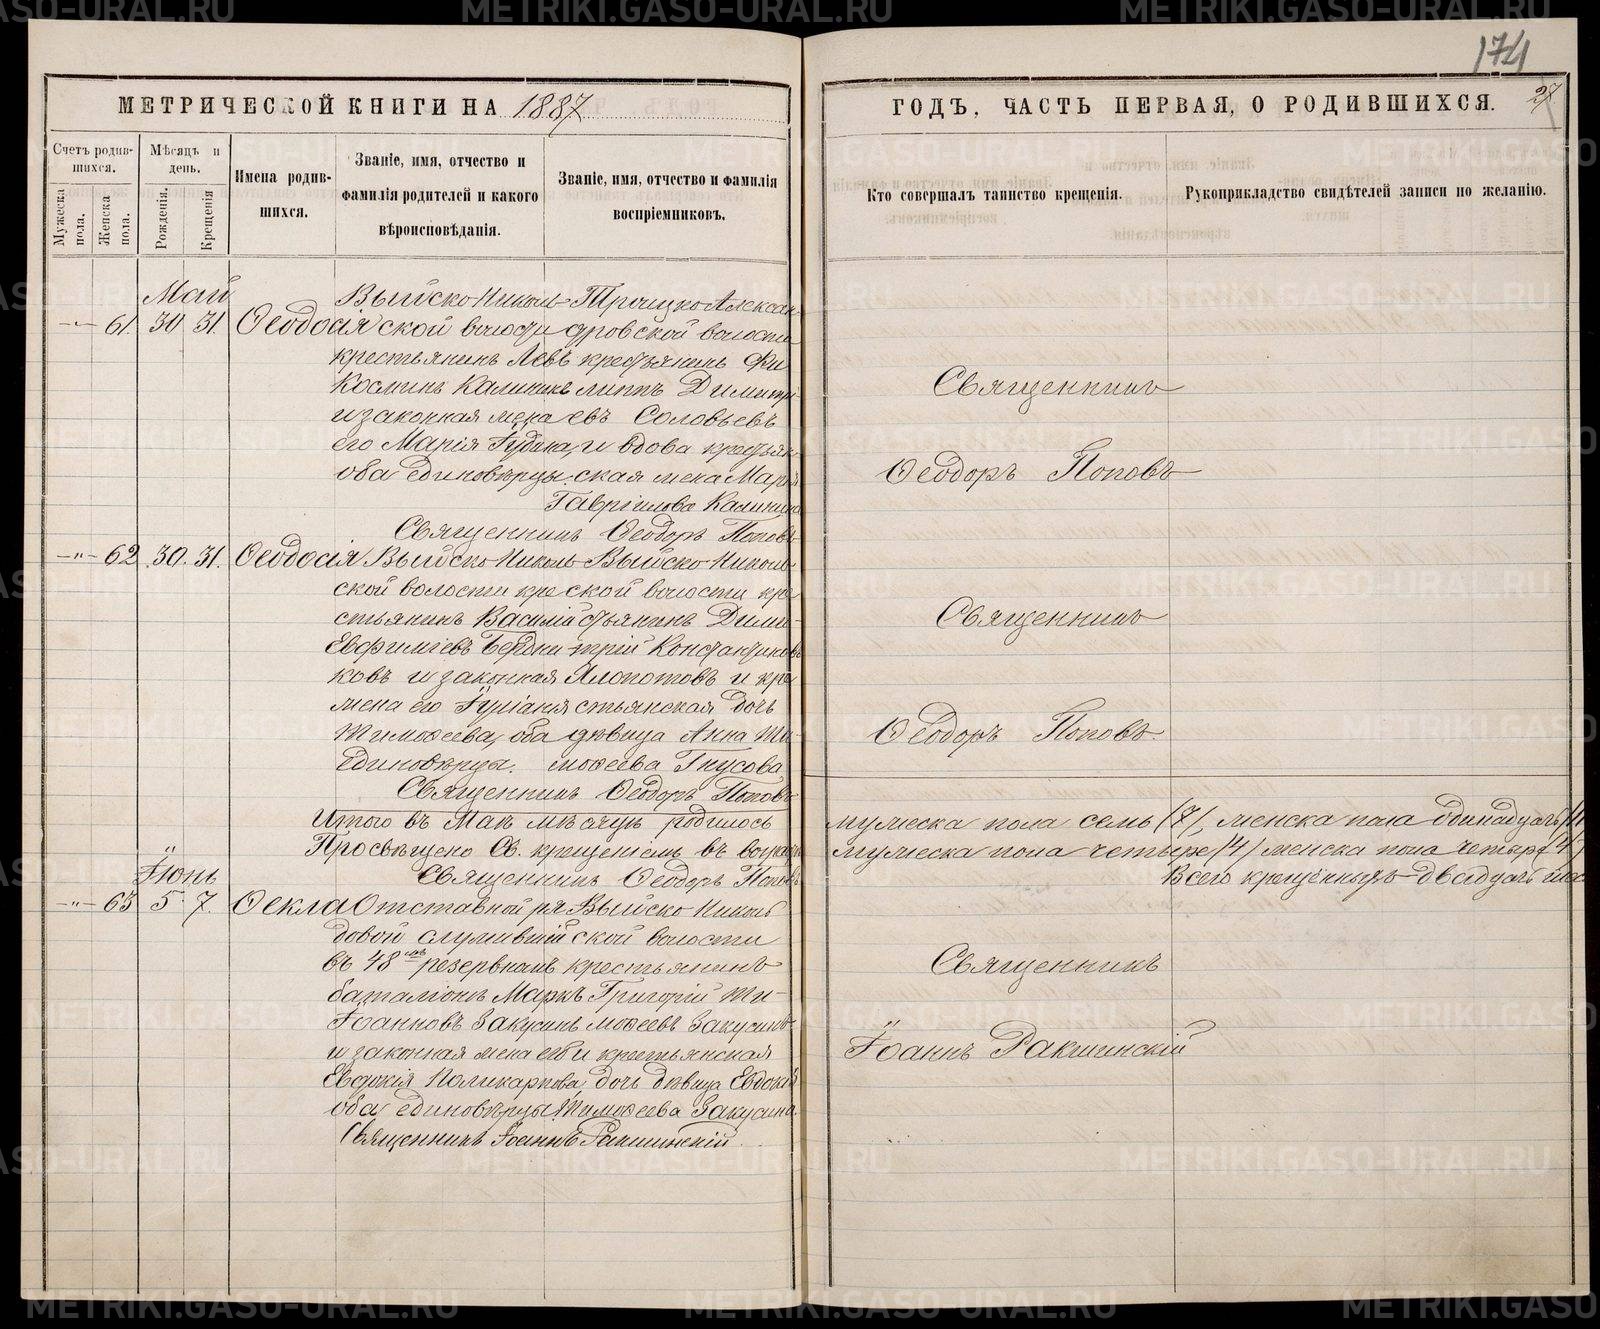 174
МЕТРИЧЕСКОЙ КНИГИ НА 1887
ГОДЪ, ЧАСТЬ ПЕРВАЯ, О РОДИВШИХСЯ.
27
Счетъ родив-
шихся.
Мужеска пола.
Женска пола.
Мѣсяцъ и
день.
Рожденія.
Крещенія
Имена родив-
шихся.
Званіе, имя, отчество и
фамилія родителей и какого
вѣроисповѣданія.
Званіе, имя, отчество и фамилія
воспріемниковъ.
Кто совершалъ таинство крещенія.
Рукоприкладство свидѣтелей записи по желанію.
Май
61. 30 31. Ѳеодосія
Выйско-Николь-
ской волости
крестьянинъ Левъ
Косминъ Калининъ
и законная жена
его Марія
оба единовѣрцы.
Троицко Алексан-
дровской волости
крестьянинъ Фи
липпъ Димитрі-
евъ Соловьевъ
и вдова крестьян-
ская жена Марія
Гавріилова Калинина
Священникъ Ѳеодоръ Поповъ
Священникъ
Ѳеодоръ Поповъ
62 30. 31. Ѳеодосія
Выйско-Николь-
ской волости кре
стьянинъ Василій
Евфиміевъ Бердни
ковъ и законная
жена его Іуліанія
Тимоѳеева, оба
единовѣрцы.
Выйско-Николь-
ской волости кре
стьянинъ Дими-
трій Константиновъ
и кре
стьянская дочь
дѣвица Анна Ти-
моѳеева Гнусова
Священникъ Ѳеодоръ Поповъ
Священникъ
Ѳеодоръ Поповъ.
Итого въ Маѣ мѣсяцѣ родилось мужеска пола семь (7), женска пола одинадцать
Просвѣщено Св. крещеніемъ въ мужеска пола четыре (4) женска пола четыре (4)
Священникъ Ѳеодоръ Поповъ
Всего крещёныхъ двадцать
Іюнь
63 5 7. Ѳекла
Отставной ря
довой служившій
въ 48 мъ резервномъ
баталіонѣ Маркъ
Іоанновъ Закусинъ
и законная жена его
Евдокія Поликарпова,
оба единовѣрцы.
Выйско Николь
ской волости
крестьянинъ
Григорій Ти-
моѳеевъ Закусинъ
и крестьянская
дочь дѣвица Евдокія
Тимоѳеева Закусина.
Священникъ Іоаннъ Ракшинскій.
Священникъ
Іоаннъ Ракшинскій
METRIKI.GASO-URAL.RU